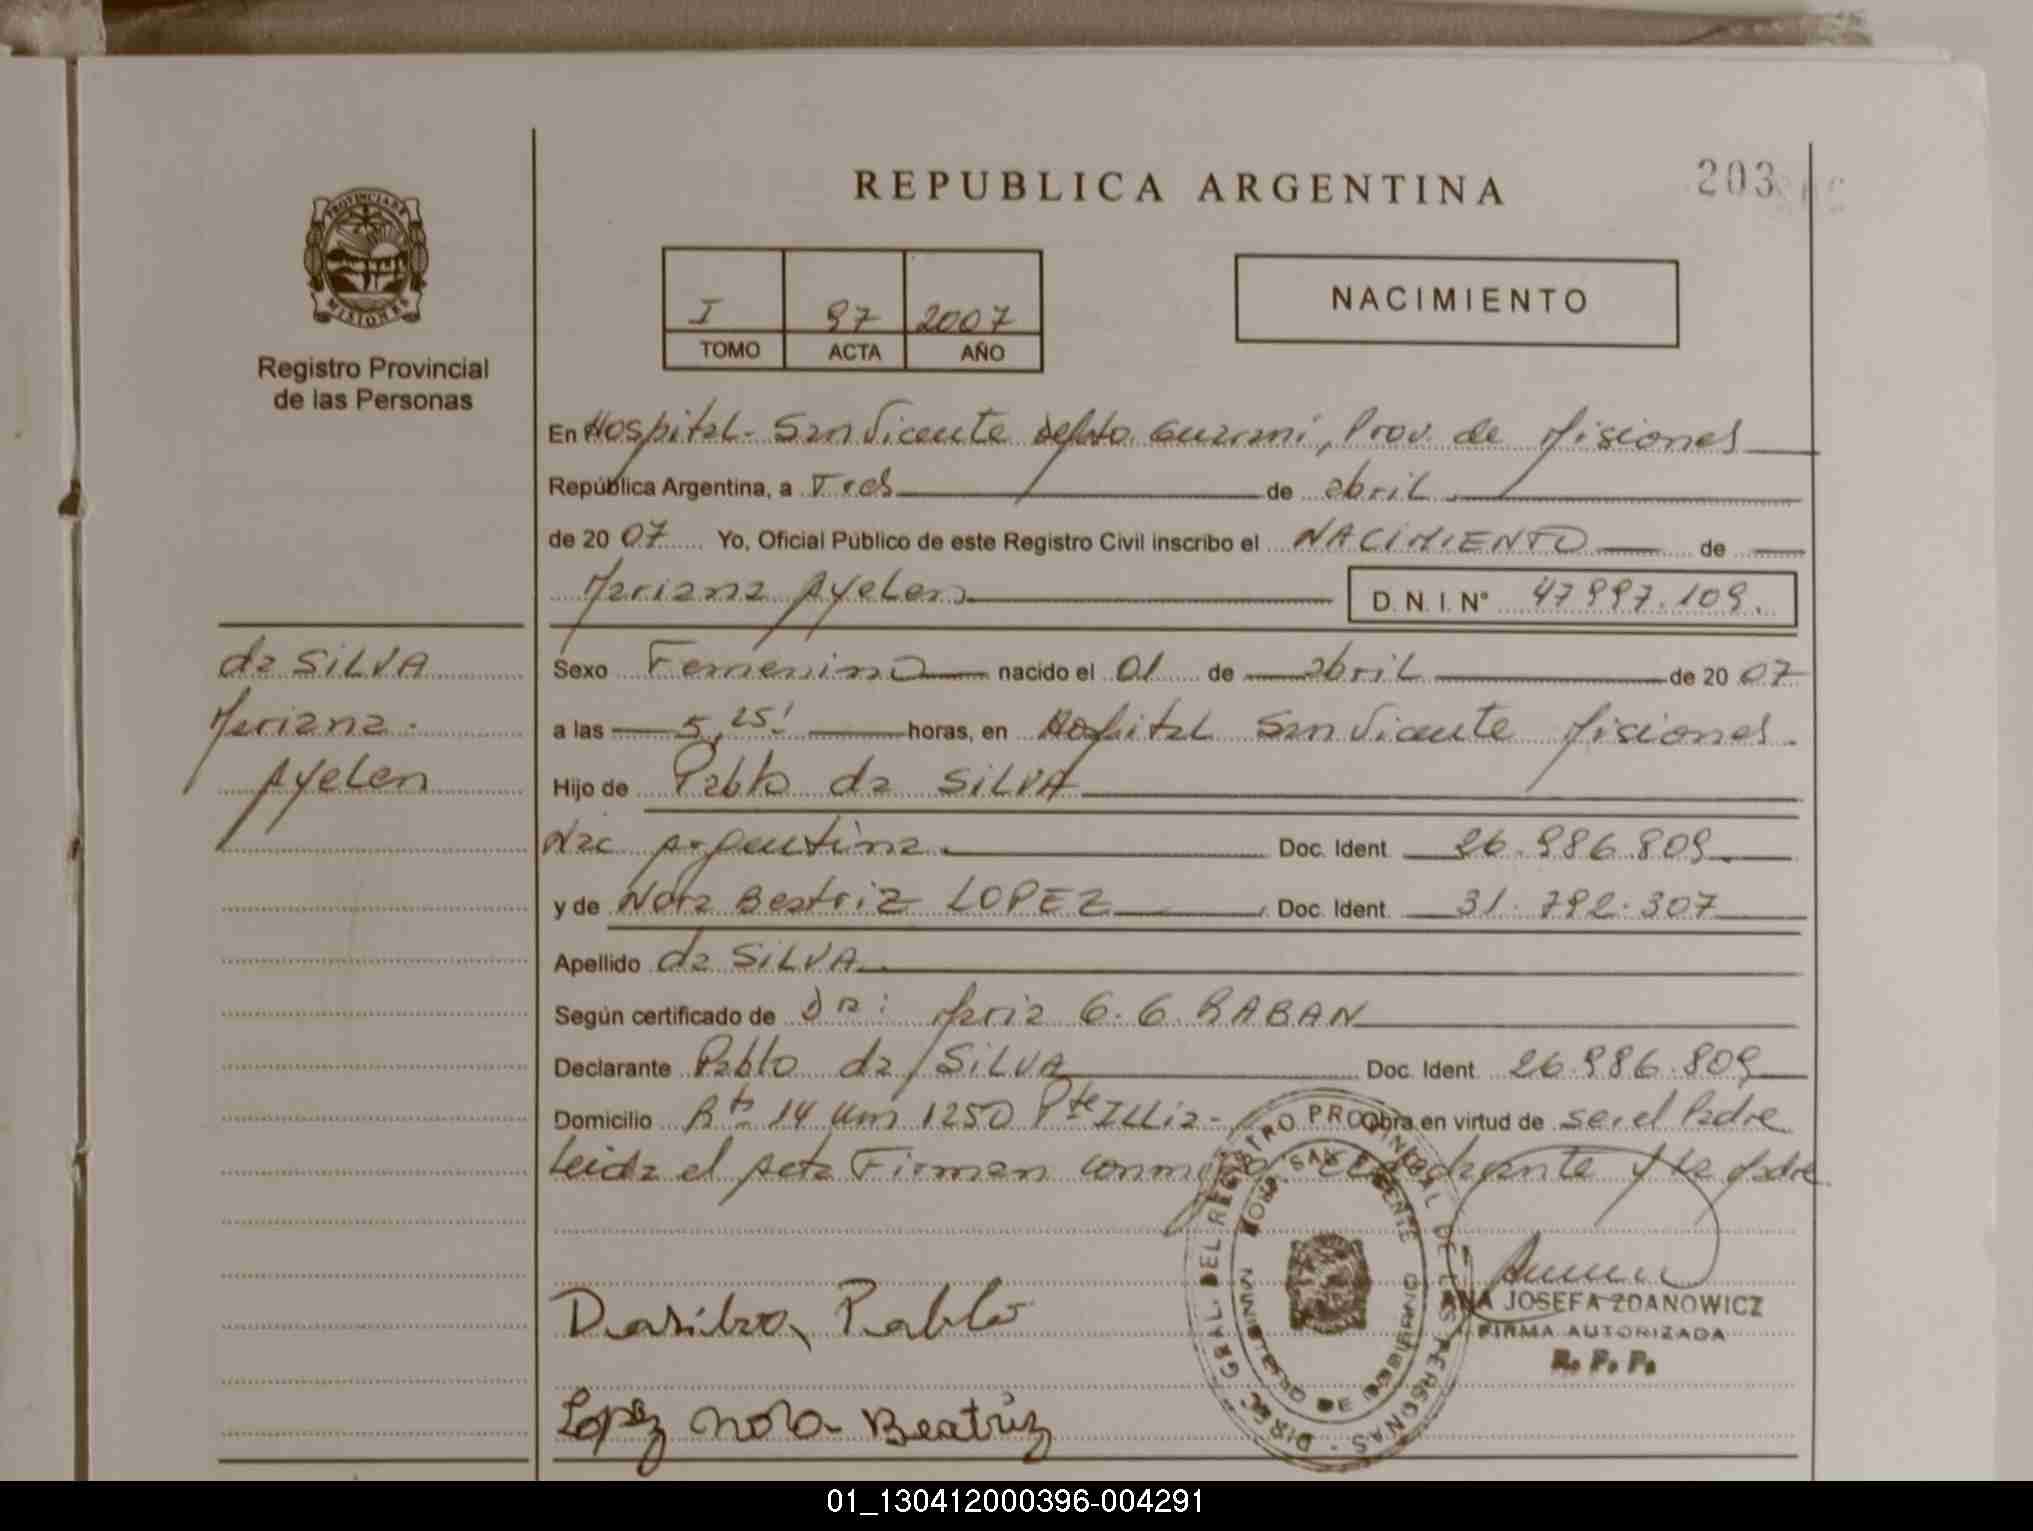 REPUBLICA ARGENTINA
203
PROVINCIA DE
MISIONES
Registro Provincial
de las Personas
I 97 2007
TOMO ACTA AÑO
NACIMIENTO
En Hospital - San Vicente Depto. Guarani, Prov. de Misiones
República Argentina, a Tres de abril
de 20 07 Yo, Oficial Público de este Registro Civil inscribo el NACIMIENTO de
Mariana Ayelen D. N. I. N° 47997.109.
da SILVA
Mariana
Ayelen
Sexo Femenino nacido el 01 de abril de 20 07
a las 5,25' horas, en Hospital San Vicente Misiones.
Hijo de Pablo da SILVA
Nac Argentina. Doc. Ident. 26.986.809.
y de Nora Beatriz LOPEZ Doc. Ident. 31.792.307
Apellido da SILVA
Según certificado de Dra: Maria G. G. RABAN
Declarante Pablo da SILVA Doc. Ident. 26.986.809
Domicilio Rta 14 Km 1250 Pte ILLia - Obra en virtud de ser el Padre
Leida el Acta Firman conmigo declarante y la Madre
Dasilva, Pablo
Lopez Nora Beatriz
DIREC. GRAL. DEL REGISTRO PROVINCIAL DE LAS PERSONAS
SAN VICENTE
ANA JOSEFA ZDANOWICZ
FIRMA AUTORIZADA
R. P. P.
01_130412000396-004291